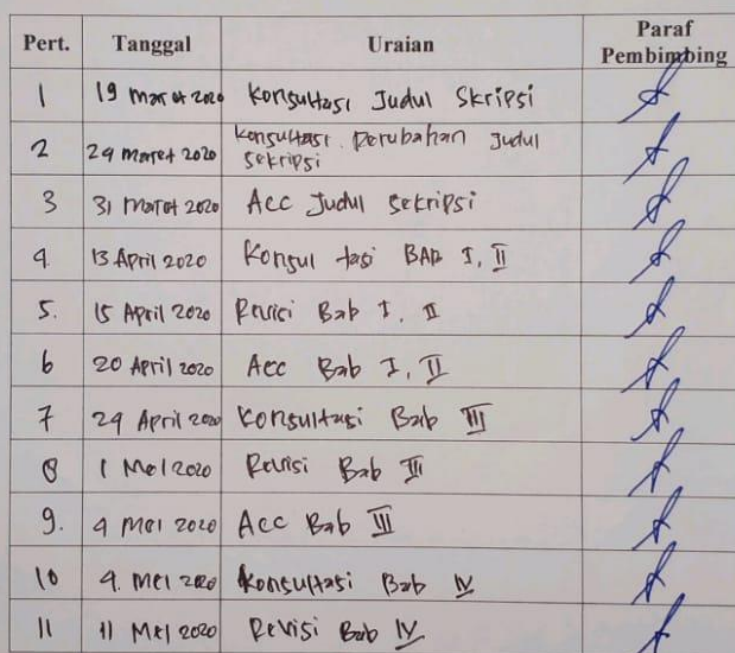 Pert. Tanggal Uraian Paraf Pembimbing
1 19 Maret 2020 Konsultasi Judul Skripsi
2 24 Maret 2020 Konsultasi Perubahan Judul
sekripsi
3 31 Maret 2020 Acc Judul sekripsi
4 13 April 2020 Konsul tasi BAB I, II
5. 15 April 2020 Revisi Bab I, II
6 20 April 2020 Acc Bab I, II
7 24 April 2020 Konsultasi Bab III
8 1 Mei 2020 Revisi Bab III
9. 4 Mei 2020 Acc Bab III
10 4. Mei 2020 Konsultasi Bab IV
11 11 Mei 2020 Revisi Bab IV